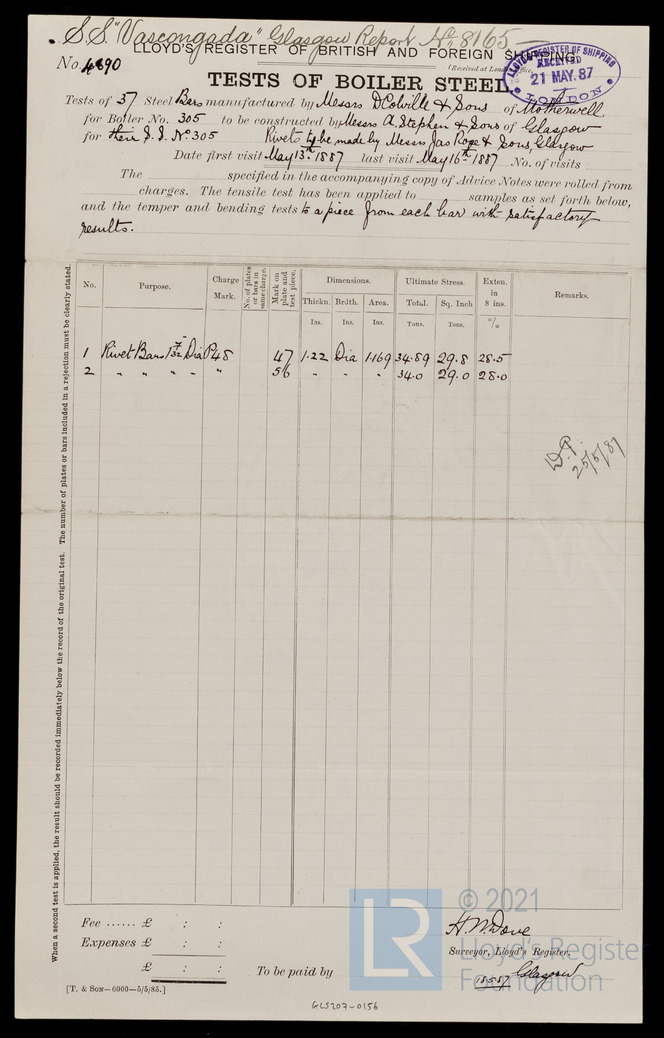 S.S. "Vascongada" Glasgow Report No 8165
LLOYD'S REGISTER OF BRITISH AND FOREIGN SHIPPING.
No. 4890
(Received at London Office,
LLOYD'S REGISTER OF SHIPPING
RECEIVED
21 MAY. 87
LONDON
TESTS OF BOILER STEEL
Tests of 37 Steel Bars manufactured by Messrs D Colville & Sons of Motherwell
for Boiler No. 305 to be constructed by Messrs A. Stephen & Sons of Glasgow
for their S.S. No 305 Rivets to be made by Messrs Jas Rope & Sons, Glasgow
Date first visit May 13th 1887 last visit May 16th 1887 No. of visits
The specified in the accompanying copy of Advice Notes were rolled from
charges. The tensile test has been applied to samples as set forth below,
and the temper and bending tests to a piece from each bar with satisfactory
results.
No. Purpose. Charge Mark. No. of plates or bars in same charge. Mark on plate and test piece. Dimensions. Ultimate Stress. Exten. in 8 ins. Remarks.
Thickn. Brdth. Area. Total. Sq. Inch
Ins. Ins. Ins. Tons. Tons. %
1 Rivet Bars 1 7/32 Dia P48 47 1.22 Dia 1.169 34.89 29.8 28.5
2 " " " " " 56 " " " 34.0 29.0 28.0
25/5/87
When a second test is applied, the result should be recorded immediately below the record of the original test. The number of plates or bars included in a rejection must be clearly stated.
Fee ...... £ : :
Expenses £ : :
£ : :
To be paid by
H. W. Dove
Surveyor, Lloyd's Register,
18.5.87 Glasgow
[T. & SON—6000—5/5/85.]
GLS207-0156
LR
© 2021
Lloyd's Register
Foundation